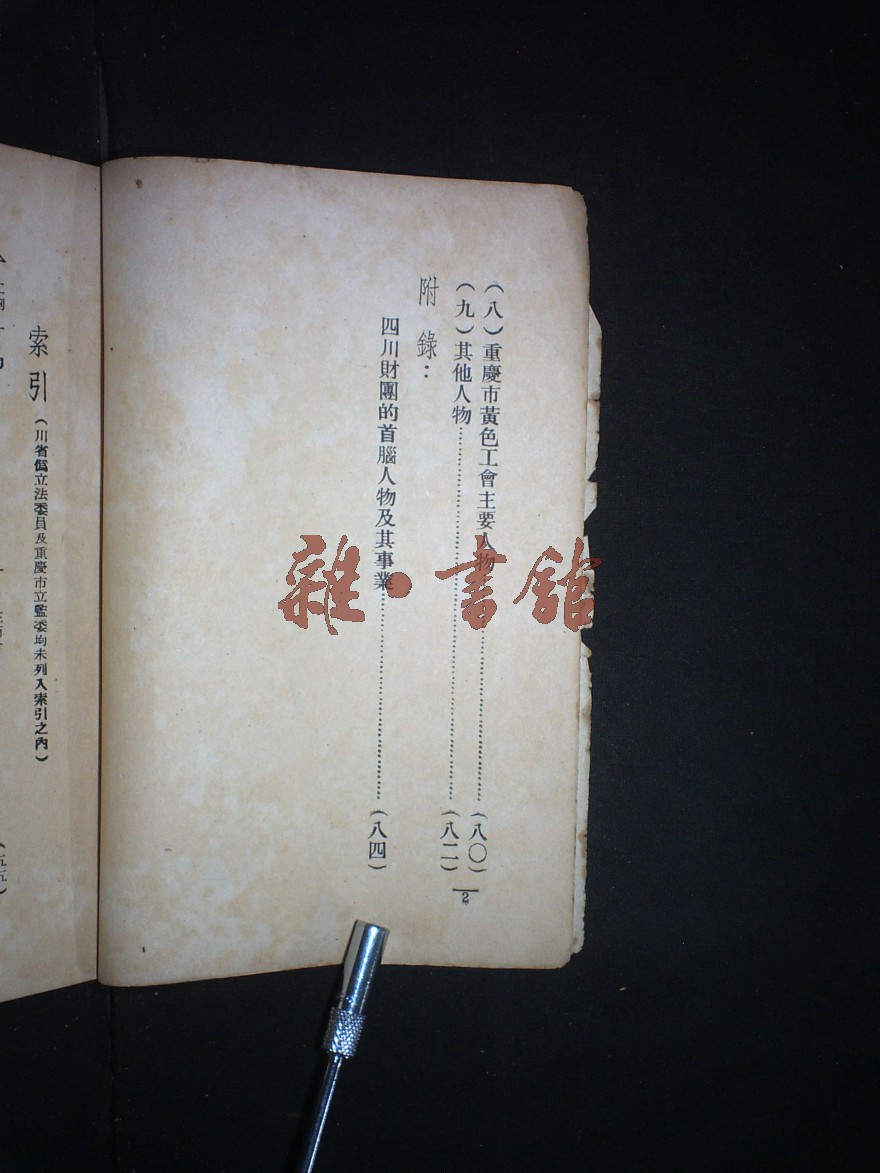 （八）重慶市黃色工會主要人物……（八〇）
（九）其他人物……（八二）
附錄：
四川財團的首腦人物及其事業……（八四）
2
索引（川省僞立法委員及重慶市立監委均未列入索引之內）
（五五）
雜·書館